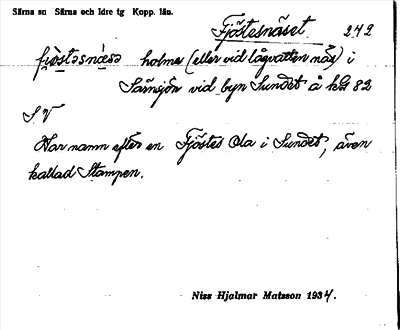 Särna sn Särna och Idre tg Kopp. län.
Fjöstesnäset. 242
fiòstəsnæsə holme (eller vid lågvatten näs) i
Särnsjön vid byn Sundet å kbl 82
S V
Har namn efter en Fjöstes Ola i Sundet, även
kallad Stampen.
Niss Hjalmar Matsson 1934.